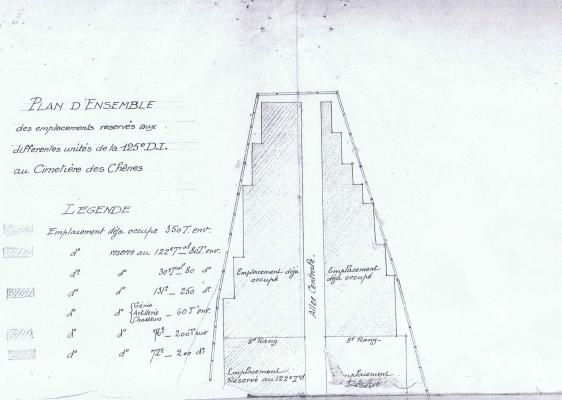 PLAN D'ENSEMBLE
des emplacements reservés aux
différentes unités de la 125e D.I.
au Cimetière des Chênes
LEGENDE
Emplacement déja occupé 350 T. env.
do reservé au 122e Tal _ 80 T. env.
do do 30e Tal _ 80 do
do do 131e _ 250 do
do do Génie
Artillerie
Chasseurs
_ 60 T. env.
do do _ 200 T. env
do do 72e _ 200 do
Allée Centrale.
Emplacement déjà
occupé
Emplacement déjà
occupé
8e Rang
8e Rang
Emplacement
Réservé au 122e Tal